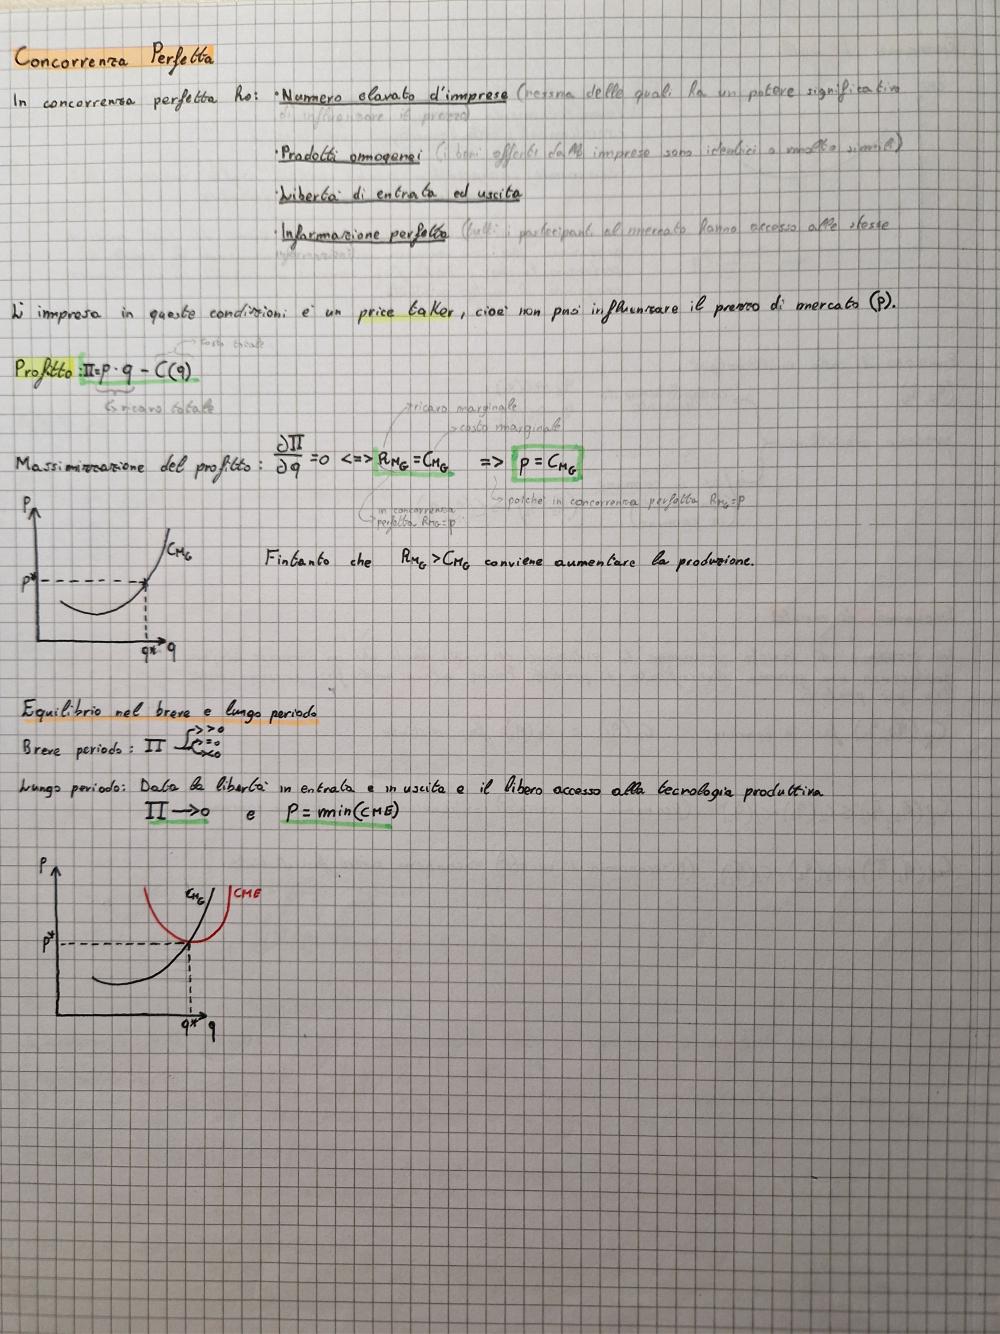 Concorrenza Perfetta
In concorrenza perfetta ho: · Numero elevato d'imprese (nessuna delle quali ha un potere significativo
di influenzare il prezzo)
· Prodotti omogenei (i beni offerti dalle imprese sono identici o molto simili)
· Libertà di entrata ed uscita
· Informazione perfetta (tutti i partecipanti al mercato hanno accesso alle stesse
informazioni)
L'impresa in queste condizioni è un price taker, cioè non può influenzare il prezzo di mercato (p).
costo totale
Profitto: Π=p·q - C(q)
ricavo totale
ricavo marginale
costo marginale
Massimizzazione del profitto: ∂Π/∂q =0 <=> RMG = CMG => p = CMG
poiché in concorrenza perfetta RMG=p
in concorrenza
perfetta RMG=p
P
CMG
p*
q* q
Fintanto che RMG > CMG conviene aumentare la produzione.
Equilibrio nel breve e lungo periodo
Breve periodo: Π >0
=0
<0
Lungo periodo: Data la libertà in entrata e in uscita e il libero accesso alla tecnologia produttiva
Π → 0 e P = min(CME)
P
CMG CME
p*
q* q